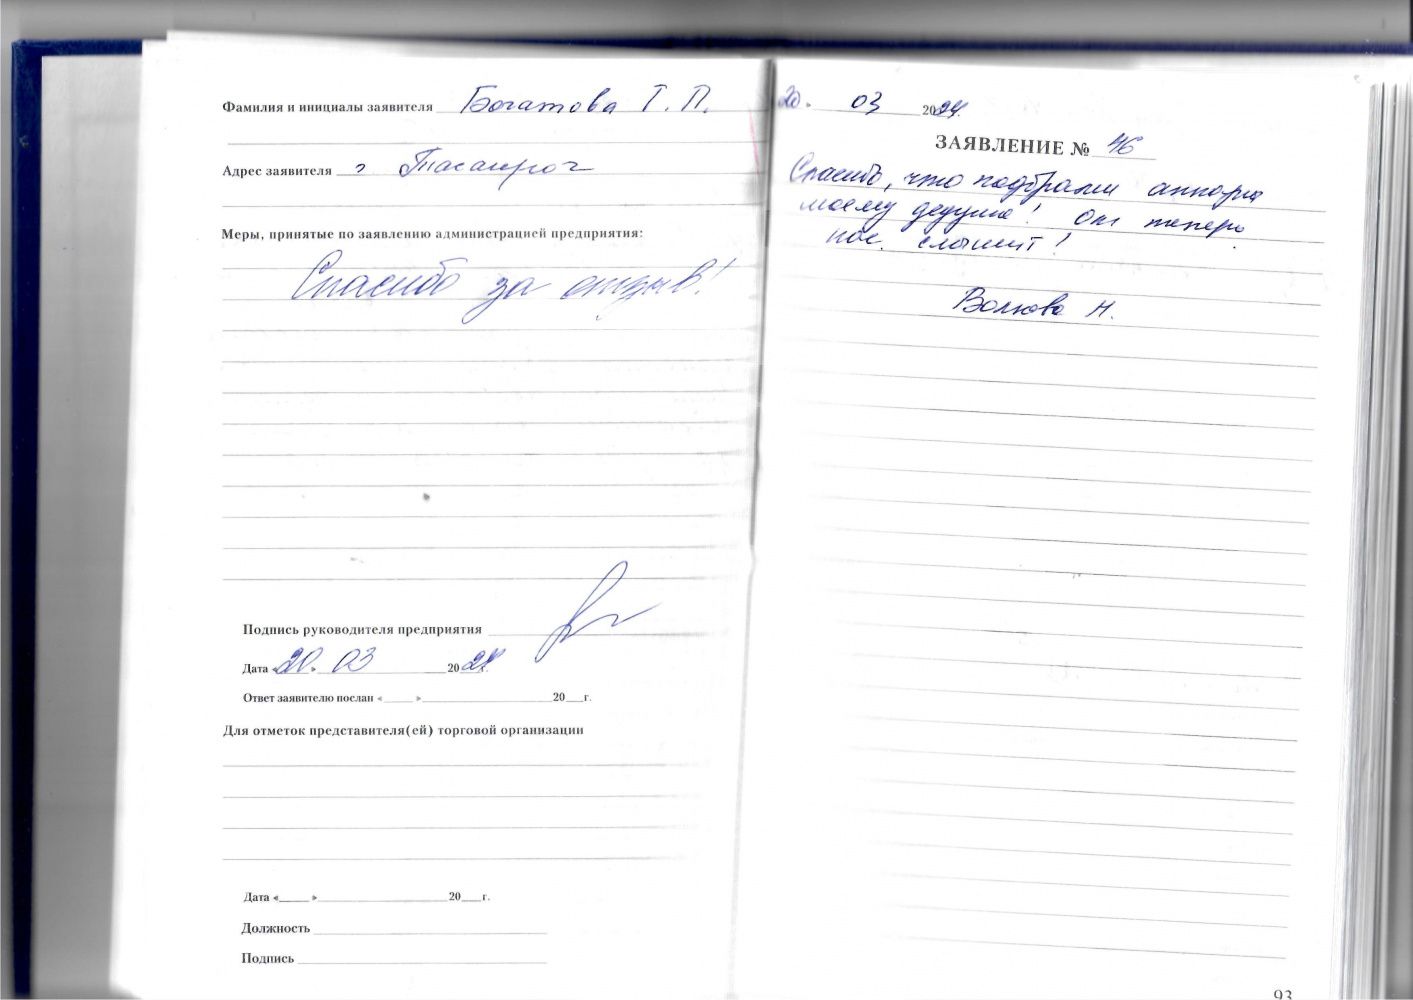 Фамилия и инициалы заявителя Богатова Т. П.
Адрес заявителя г Таганрог
Меры, принятые по заявлению администрацией предприятия:
Спасибо за отзыв!
Подпись руководителя предприятия
Дата «20.» 03 2024.
Ответ заявителю послан «____» ____ 20__г.
Для отметок представителя(ей) торговой организации
Дата «____» ____ 20__г.
Должность
Подпись
20. 03 2024.
ЗАЯВЛЕНИЕ № 46
Спасибо, что подобрали аппарат
моему дедушке! Он теперь
нас слышит!
Волкова Н.
93